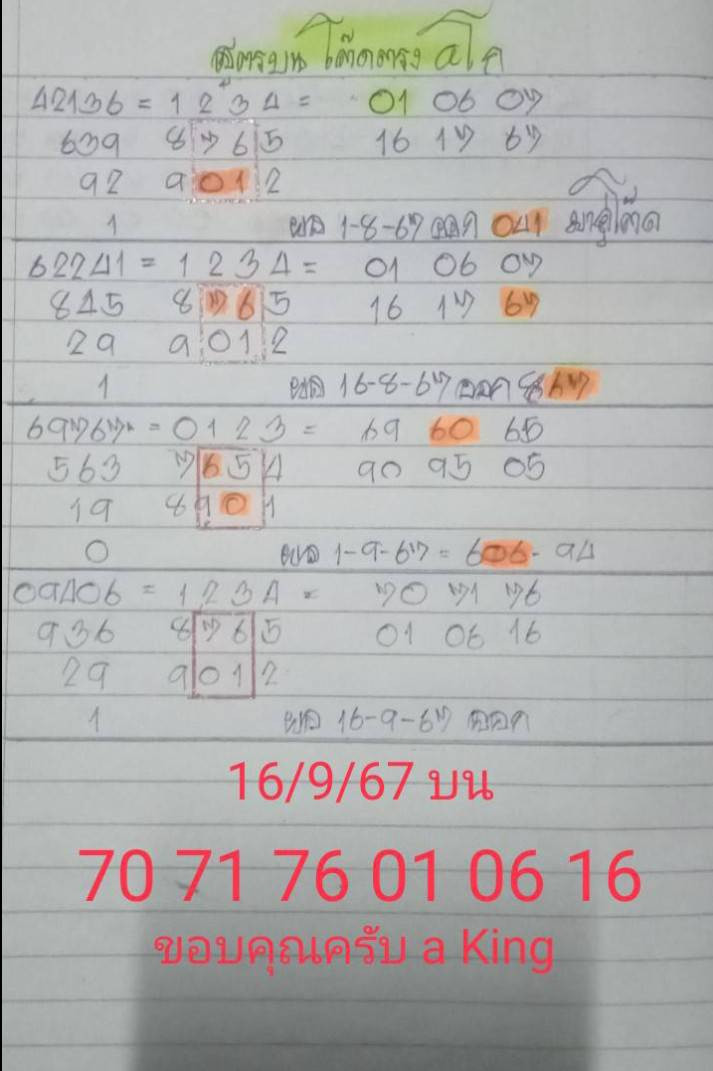 สูตรบน โต๊ดตรง a โค
42136 = 1 2 3 4 = 01 06 07
639 8 7 6 5 16 17 67
92 9 0 1 2
1 ผล 1-8-67 ออก 041 มาคู่โต๊ด
62241 = 1 2 3 4 = 01 06 07
845 8 7 6 5 16 17 67
29 9 0 1 2
1 ผล 16-8-67 ออก 867
69767 = 0 1 2 3 = 69 60 65
563 7 6 5 4 90 95 05
19 8 9 0 1
0 ผล 1-9-67 = 606-94
09406 = 1 2 3 4 = 70 71 76
936 8 7 6 5 01 06 16
29 9 0 1 2
1 ผล 16-9-67 ออก
16/9/67 บน
70 71 76 01 06 16
ขอบคุณครับ a King